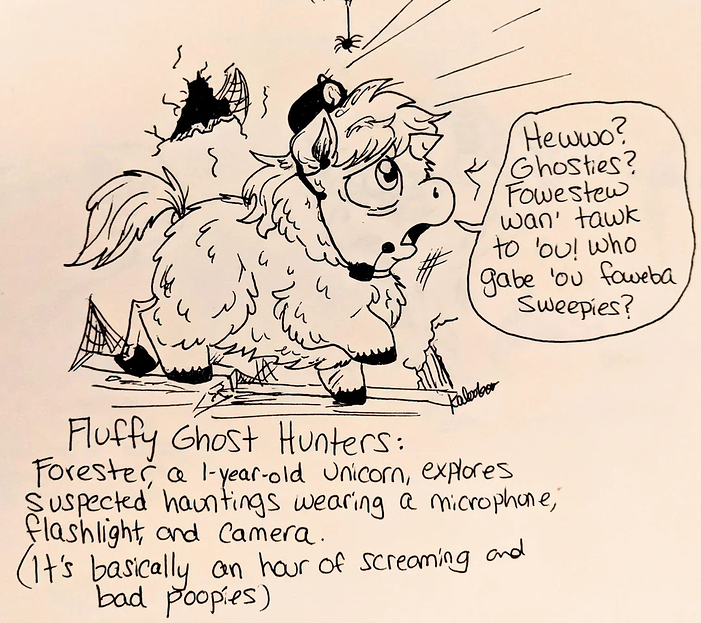 Hewwo?
Ghosties?
Fowestew
wan' tawk
to 'ou! who
gabe 'ou foweba
Sweepies?
Kaloobor
Fluffy Ghost Hunters:
Forester, a 1-year-old unicorn, explores
suspected hauntings wearing a microphone,
flashlight, and camera.
(It's basically an hour of screaming and
bad poopies)